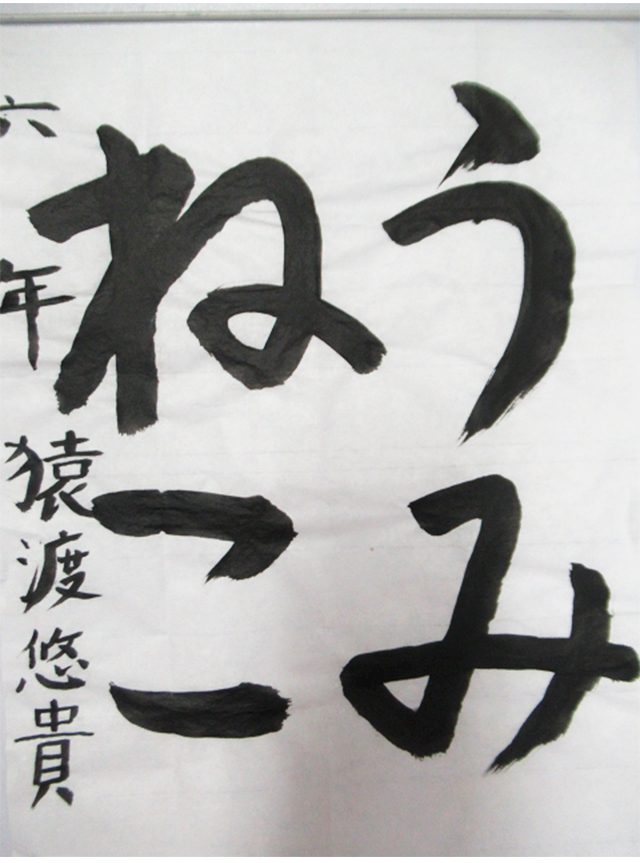 うみ
ねこ
六年 猿渡悠貴